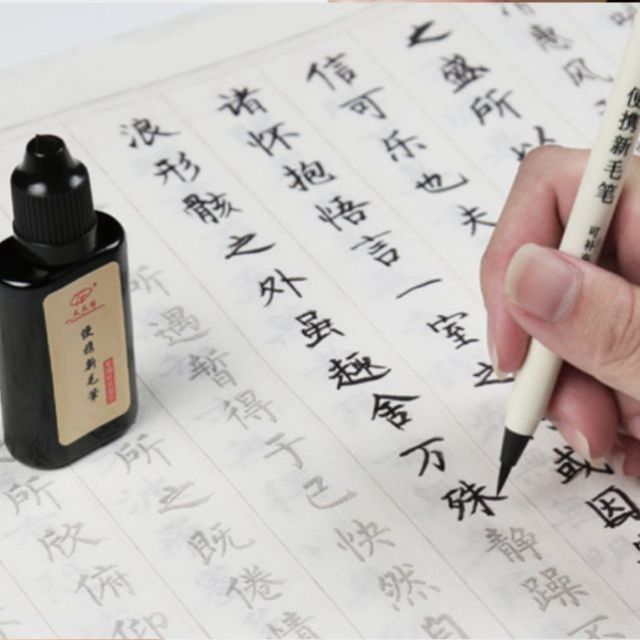 惠风
之盛所以
信可乐也夫
诸怀抱悟言一室之
或因
浪形骸之外虽趣舍万殊静躁
所遇暂得于己快然自
所之既倦情
所欣俯仰
便携新毛笔
可补
便携新毛筆